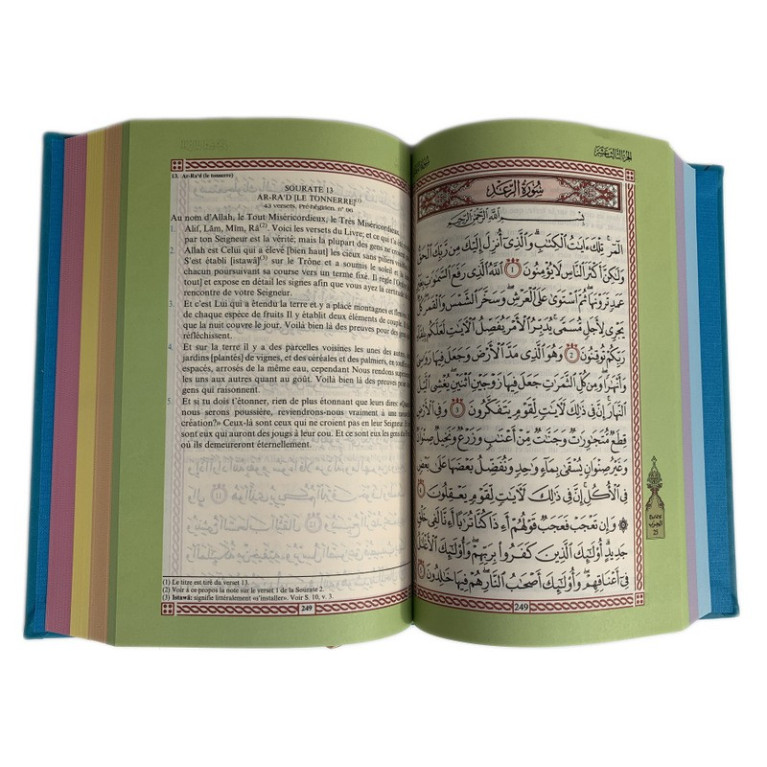 13. Ar-Ra'd (le tonnerre)
SOURATE 13
AR-RA'D [LE TONNERRE](1)
43 versets. Pré-hégirien. n° 96
Au nom d'Allah, le Tout Miséricordieux, le Très Miséricordieux.
1. Alif, Lām, Mīm, Rā(2). Voici les versets du Livre; et ce qui t'a
par ton Seigneur est la vérité; mais la plupart des gens ne
2. Allah est Celui qui a élevé [bien haut] les cieux sans piliers
S'est établi [istawā](3) sur le Trône et a soumis le soleil et la
chacun poursuivant sa course vers un terme fixé. Il règle l'Ordre
tout] et expose en détail les signes afin que vous ayez la certitude
rencontre de votre Seigneur.
3. Et c'est Lui qui a étendu la terre et y a placé montagnes et
de chaque espèce de fruits Il y établit deux éléments de couple. Il
que la nuit couvre le jour. Voilà bien des preuves pour des
réfléchissent.
4. Et sur la terre il y a des parcelles voisines les unes des autres,
jardins [plantés] de vignes, et des céréales et des palmiers, en
espacés, arrosés de la même eau, cependant Nous rendons
les uns aux autres quant au goût. Voilà bien des preuves pour
gens qui raisonnent.
5. Et si tu dois t'étonner, rien de plus étonnant que leurs dires:
nous serons poussière, reviendrons-nous vraiment à une
création?» Ceux-là sont ceux qui ne croient pas en leur Seigneur.
sont ceux qui auront des jougs à leur cou. Et ce sont eux les gens du
où ils demeureront éternellement.
(1) Le titre est tiré du verset 13.
(2) Voir à ce propos la note sur le verset 1 de la Sourate 2.
(3) Istawā: signifie littéralement «s'installer». Voir S. 10, v. 3.
249
الجزء الثالث عشر
سُورَةُ الرَّعْدِ
بِسْمِ اللَّهِ الرَّحْمَٰنِ الرَّحِيمِ
الٓمٓر ۚ تِلْكَ ءَايَٰتُ ٱلْكِتَٰبِ ۗ وَٱلَّذِىٓ أُنزِلَ إِلَيْكَ مِن رَّبِّكَ ٱلْحَقُّ
وَلَٰكِنَّ أَكْثَرَ ٱلنَّاسِ لَا يُؤْمِنُونَ ١ ٱللَّهُ ٱلَّذِى رَفَعَ ٱلسَّمَٰوَٰتِ بِغَيْرِ
عَمَدٍ تَرَوْنَهَا ۖ ثُمَّ ٱسْتَوَىٰ عَلَى ٱلْعَرْشِ ۖ وَسَخَّرَ ٱلشَّمْسَ وَٱلْقَمَرَ ۖ كُلٌّ
يَجْرِى لِأَجَلٍ مُّسَمًّى ۚ يُدَبِّرُ ٱلْأَمْرَ يُفَصِّلُ ٱلْءَايَٰتِ لَعَلَّكُم بِلِقَآءِ
رَبِّكُمْ تُوقِنُونَ ٢ وَهُوَ ٱلَّذِى مَدَّ ٱلْأَرْضَ وَجَعَلَ فِيهَا رَوَٰسِىَ
وَأَنْهَٰرًا ۖ وَمِن كُلِّ ٱلثَّمَرَٰتِ جَعَلَ فِيهَا زَوْجَيْنِ ٱثْنَيْنِ ۖ يُغْشِى ٱلَّيْلَ
ٱلنَّهَارَ ۚ إِنَّ فِى ذَٰلِكَ لَءَايَٰتٍ لِّقَوْمٍ يَتَفَكَّرُونَ ٣ وَفِى ٱلْأَرْضِ
قِطَعٌ مُّتَجَٰوِرَٰتٌ وَجَنَّٰتٌ مِّنْ أَعْنَٰبٍ وَزَرْعٌ وَنَخِيلٌ صِنْوَانٌ
وَغَيْرُ صِنْوَانٍ يُسْقَىٰ بِمَآءٍ وَٰحِدٍ وَنُفَضِّلُ بَعْضَهَا عَلَىٰ بَعْضٍ
فِى ٱلْأُكُلِ ۚ إِنَّ فِى ذَٰلِكَ لَءَايَٰتٍ لِّقَوْمٍ يَعْقِلُونَ ٤
۞ وَإِن تَعْجَبْ فَعَجَبٌ قَوْلُهُمْ أَءِذَا كُنَّا تُرَٰبًا أَءِنَّا لَفِى خَلْقٍ
جَدِيدٍ ۗ أُو۟لَٰٓئِكَ ٱلَّذِينَ كَفَرُوا۟ بِرَبِّهِمْ ۖ وَأُو۟لَٰٓئِكَ ٱلْأَغْلَٰلُ
فِىٓ أَعْنَاقِهِمْ ۖ وَأُو۟لَٰٓئِكَ أَصْحَٰبُ ٱلنَّارِ ۖ هُمْ فِيهَا خَٰلِدُونَ ٥
الحزب
25
249